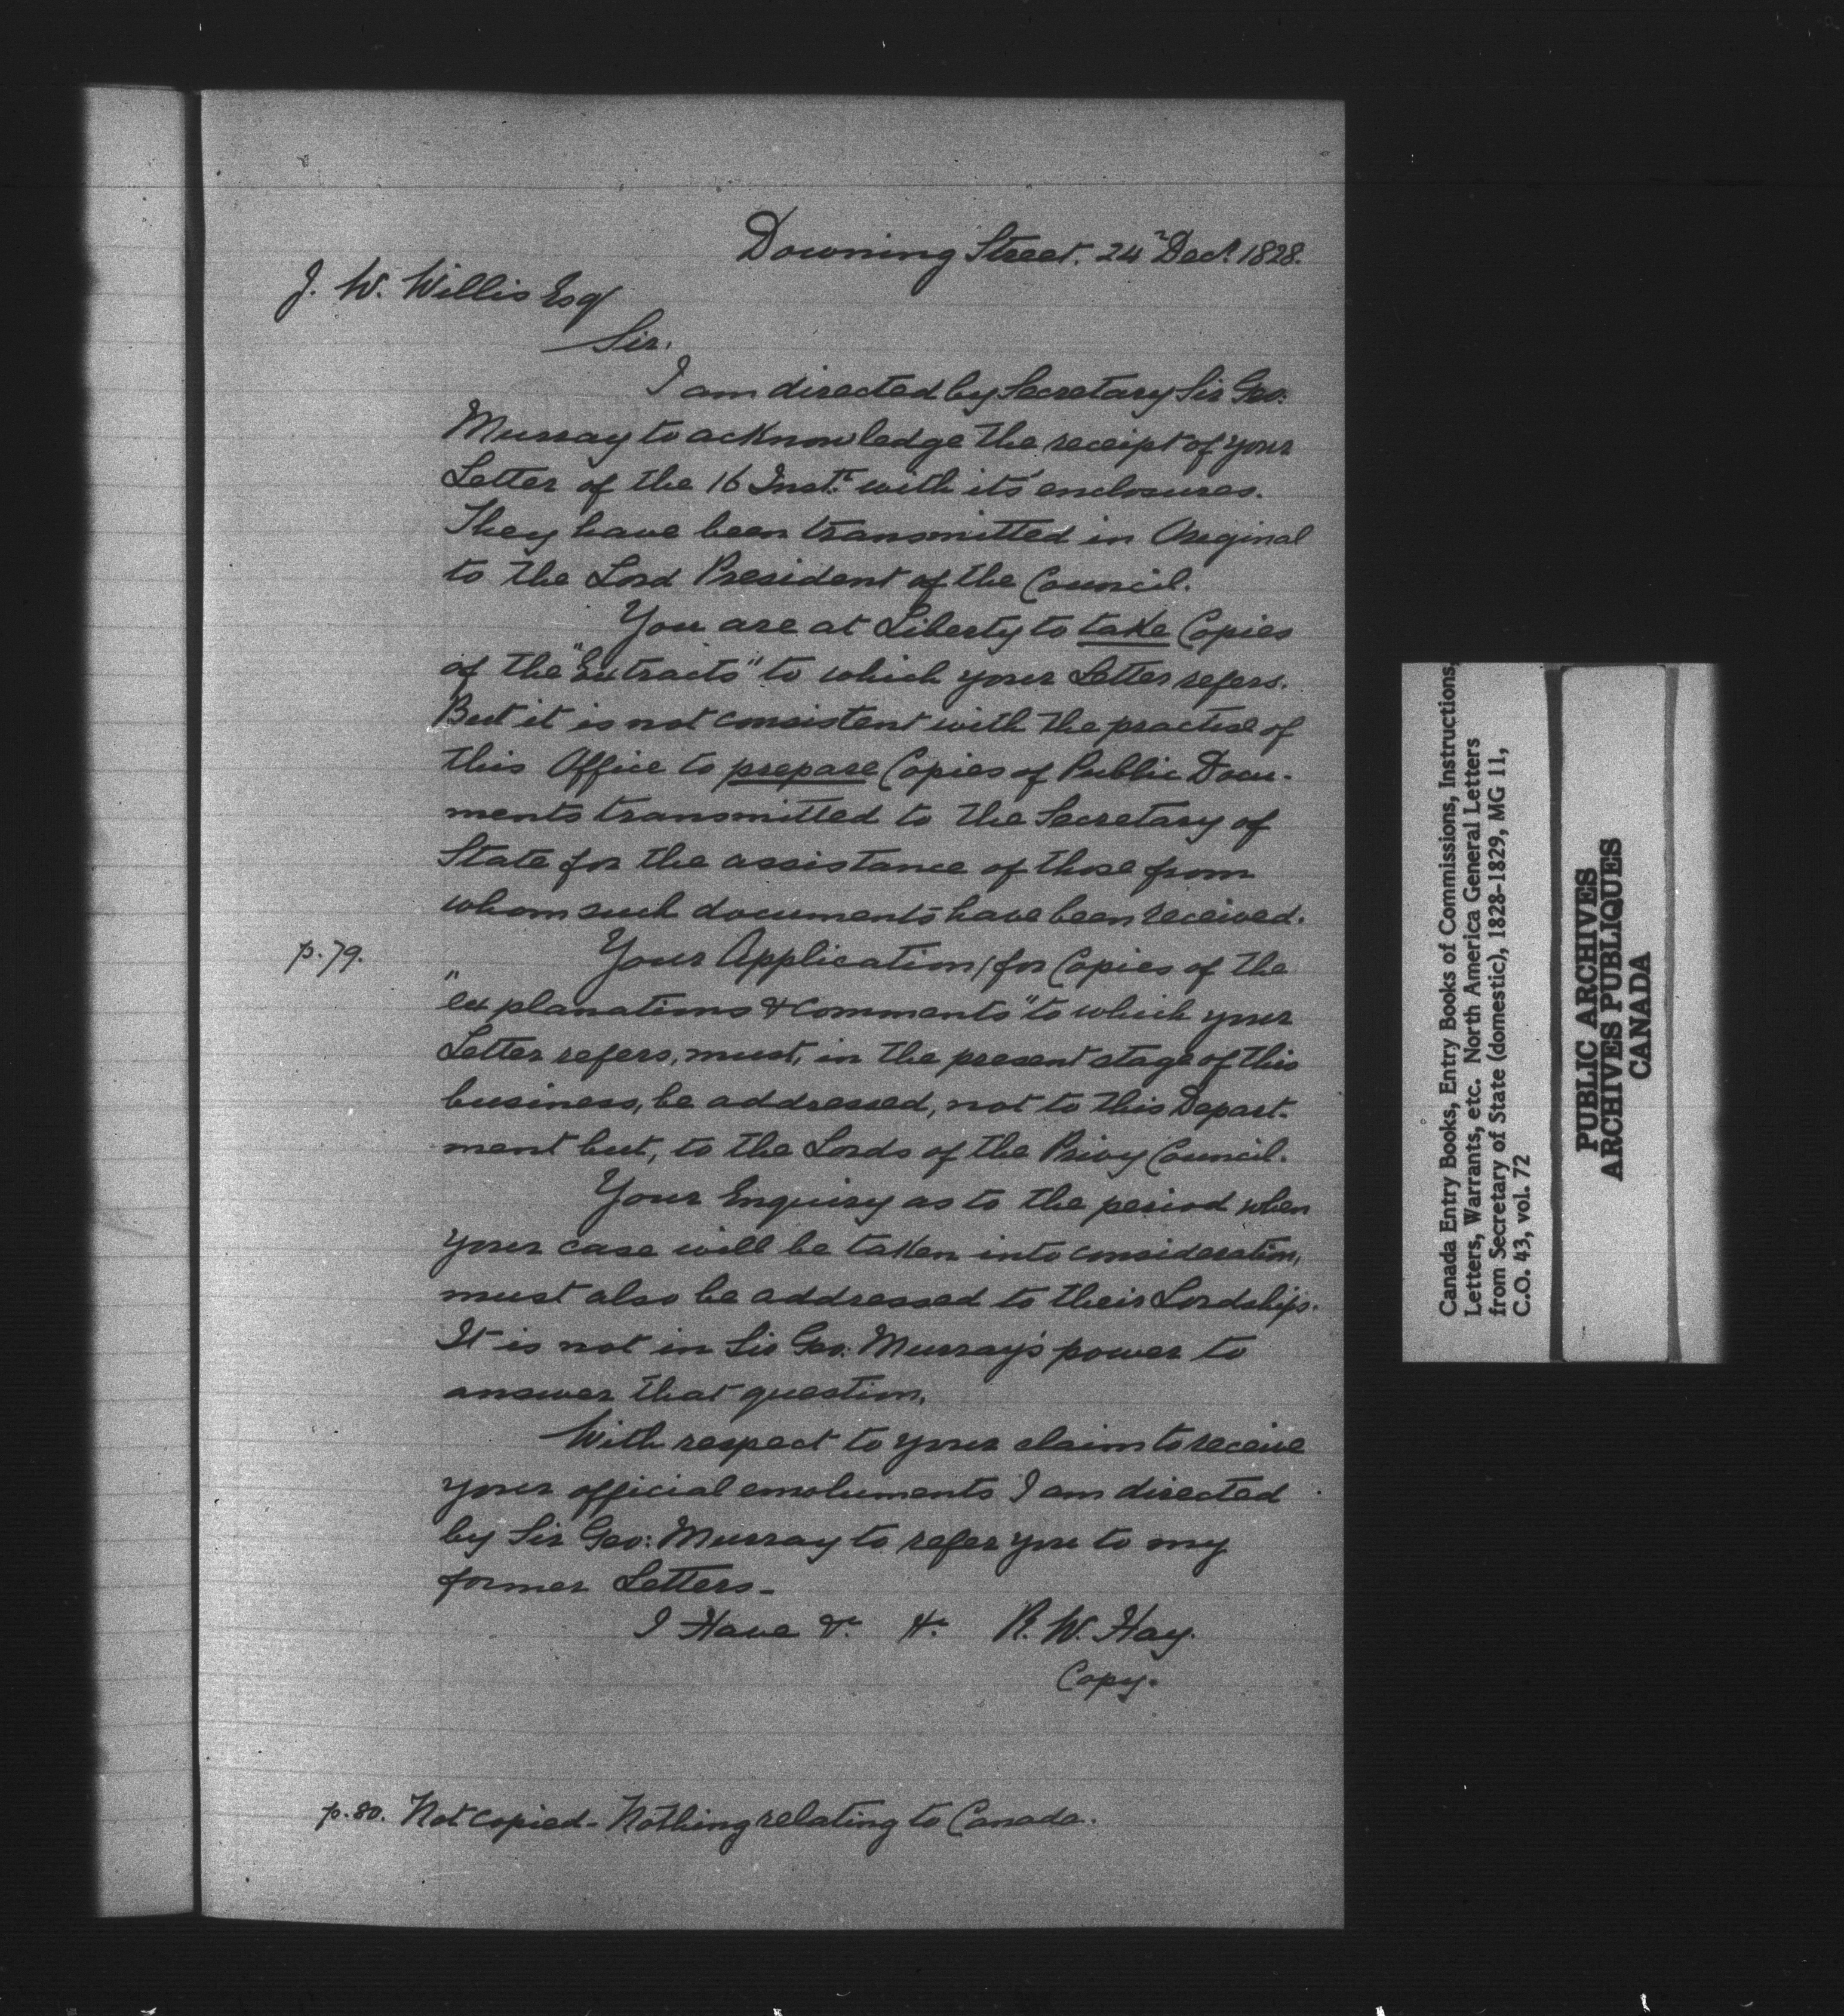 Downing Street. 24 Decr. 1828.
J. W. Willis Esqr
Sir.
I am directed by Secretary Sir Geo:
Murray to acknowledge the receipt of your
Letter of the 16 Inst. with its enclosures.
They have been transmitted in Original
to the Lord President of the Council.
You are at Liberty to take Copies
of the "Extracts" to which your Letter refers.
But it is not consistent with the practise of
this Office to prepare Copies of Public Docu-
ments transmitted to the Secretary of
State for the assistance of those from
whom such documents have been received.
p. 79. Your Application, for Copies of the
"explanations & comments" to which your
Letter refers, must, in the present stage of this
business, be addressed, not to this Depart-
ment but, to the Lords of the Privy Council.
Your Enquiry as to the period when
your case will be taken into consideration,
must also be addressed to their Lordships.
It is not in Sir Geo. Murray's power to
answer that question.
With respect to your claim to receive
your official emoluments I am directed
by Sir Geo: Murray to refer you to my
former Letters -
I Have &c. &c. R. W. Hay.
Copy.
p. 80. Not copied - Nothing relating to Canada.
Canada Entry Books, Entry Books of Commissions, Instructions,
Letters, Warrants, etc. North America General Letters
from Secretary of State (domestic), 1828-1829, MG 11,
C.O. 43, vol. 72
PUBLIC ARCHIVES
ARCHIVES PUBLIQUES
CANADA